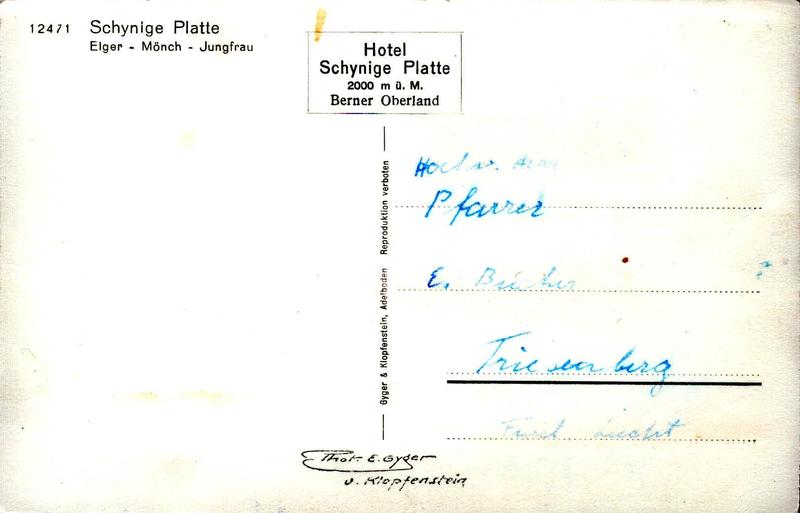 12471 Schynige Platte
Eiger - Mönch - Jungfrau
Hotel
Schynige Platte
2000 m ü. M.
Berner Oberland
Gyger & Klopfenstein, Adelboden Reproduktion verboten
Hochw. Herr
Pfarrer
E.
Triesenberg
Phot. E. Gyger
u. Klopfenstein